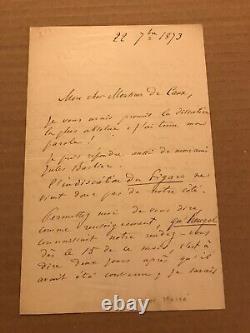 22 7bre 1873
Mon cher Monsieur de Caux,
Je vous avais promis la discrétion
la plus absolue & j'ai tenu ma
parole !
Je puis répondre aussi de mon ami
Jules Barbier.
L'indiscrétion du Figaro ne
vient donc pas de notre côté.
Permettez moi de vous dire
comme renseignement, que
connaissait notre rendez-vous
dès le 15 de ce mois, c'est à
dire deux jours après qu'il
avait été convenu ; je savais